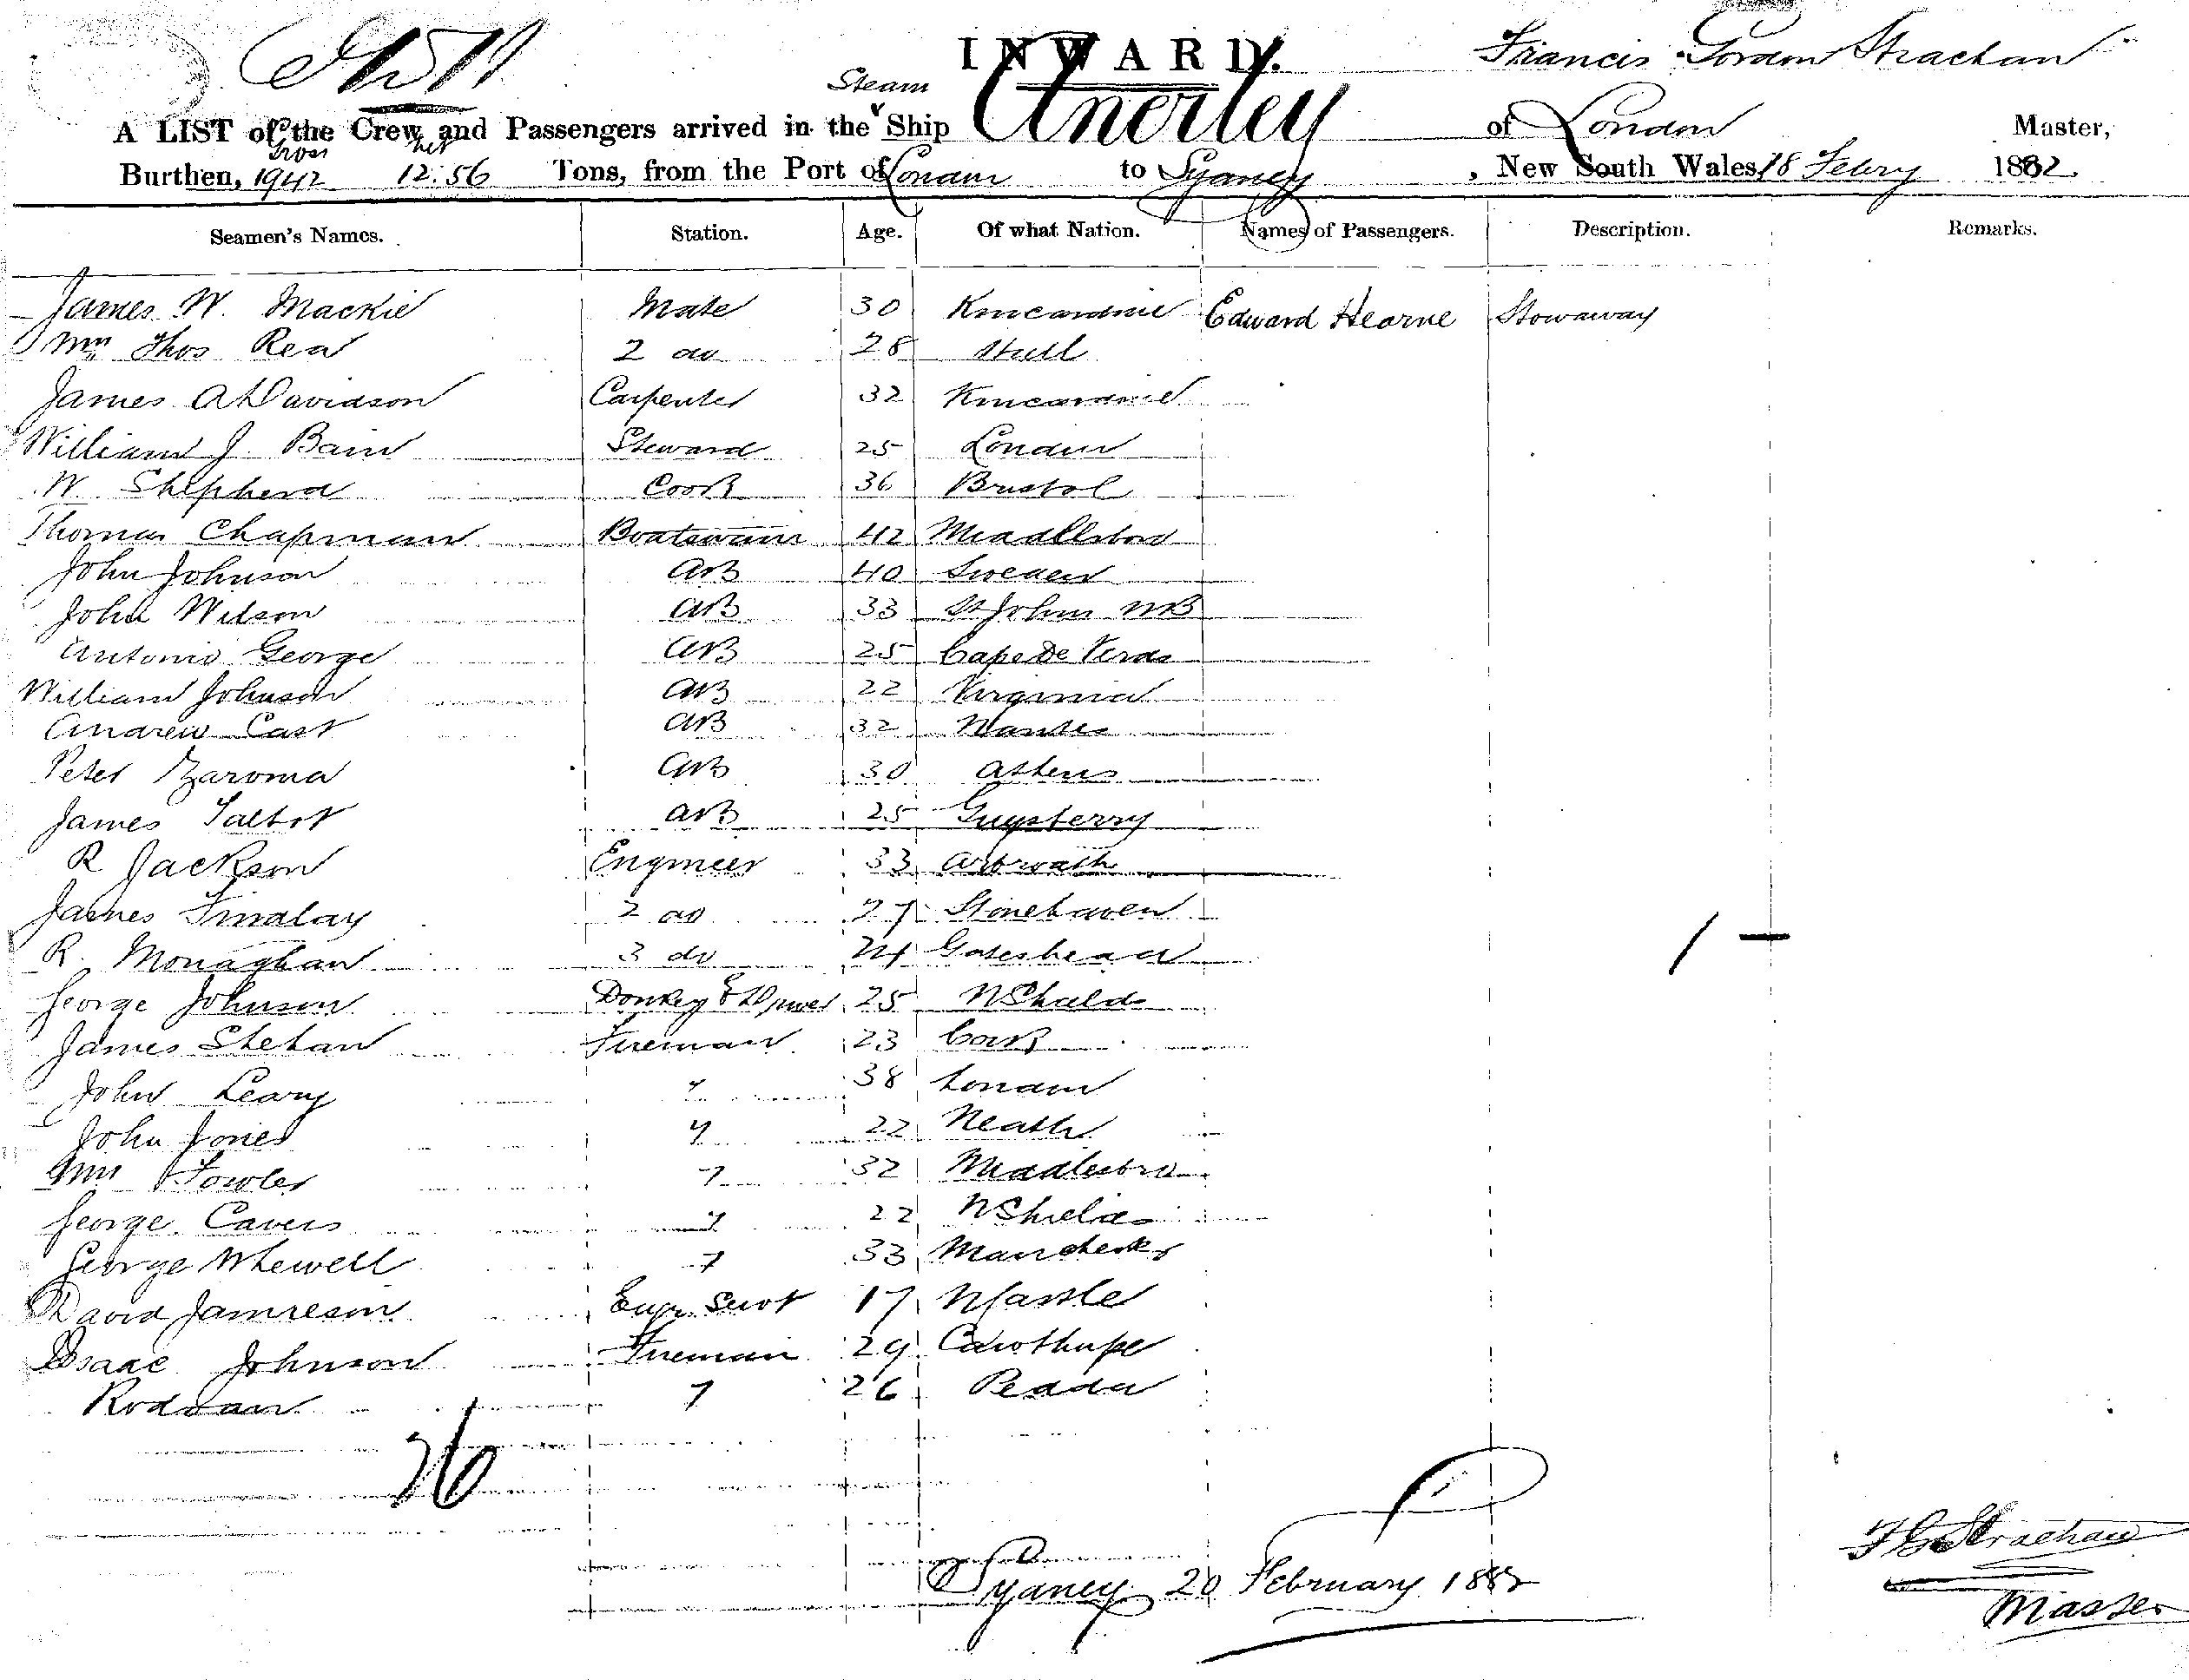 INWARD.
Francis Gordon Strachan
Steam
A LIST of the Crew and Passengers arrived in the Ship Anerley of London Master,
Gross net
Burthen, 1942 12.56 Tons, from the Port of London to Sydney, New South Wales, 18 Febry 1882.
Seamen's Names. Station. Age. Of what Nation. Names of Passengers. Description. Remarks.
James W. Mackie Mate 30 Kincardine Edward Hearne Stowaway
Wm Thos Rea 2 do 28 Hull
James A Davidson Carpenter 32 Kincardine
William J. Bain Steward 25 London
W. Shepherd Cook 36 Bristol
Thomas Chapman Boatswain 42 Middlesboro
John Johnson AB 40 Sweden
John Wilson AB 33 St Johns NB
Antonio George AB 25 Cape De Verde
William Johnson AB 22 Virginia
Andrew Cast AB 32 Nantes
Peter Zaroma AB 30 Athens
James Talbot AB 25 Guysterry
R Jackson Engineer 33 Arbroath
James Findlay 2 do 27 Stonehaven
R. Monaghan 3 do 24 Gateshead
George Johnson Donkey E Driver 25 N Shields
James Shehan Fireman 23 Cork
John Leary " 38 London
John Jones " 22 Neath
Wm Fowler " 32 Middlesbro
George Cavers " 22 N Shields
George Whewell " 33 Manchester
David Jamieson Engr. Servt 17 NCastle
Isaac Johnson Fireman 29 Cawthorpe
Rodoan " 26 Pedda
26
F G Strachan
Sydney 20 February 1882
Master